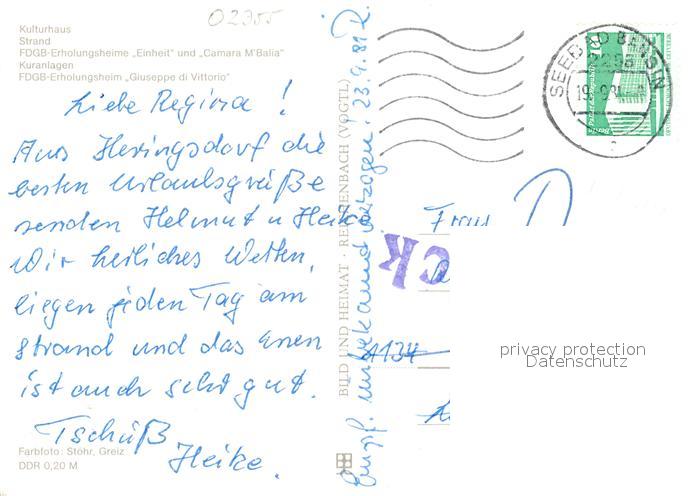 02355
Kulturhaus
Strand
FDGB-Erholungsheime „Einheit" und „Camara M'Balia"
Kuranlagen
FDGB-Erholungsheim „Giuseppe di Vittorio"
Liebe Regina!
Aus Heringsdorf die
besten Urlaubsgrüße
senden Helmut u Heike
Wir heiliches Wetter,
liegen jeden Tag am
Strand und das Essen
ist auch sehr gut.
Tschüß
Heike.
Farbfoto: Stöhr, Greiz
DDR 0,20 M
BILD UND HEIMAT · REICHENBACH (VOGTL)
Empf. unbekannt verzogen! 23.9.81
SEEBAD BANSIN
2255
19.9.81
10
Frau
CK
A134
privacy protection
Datenschutz